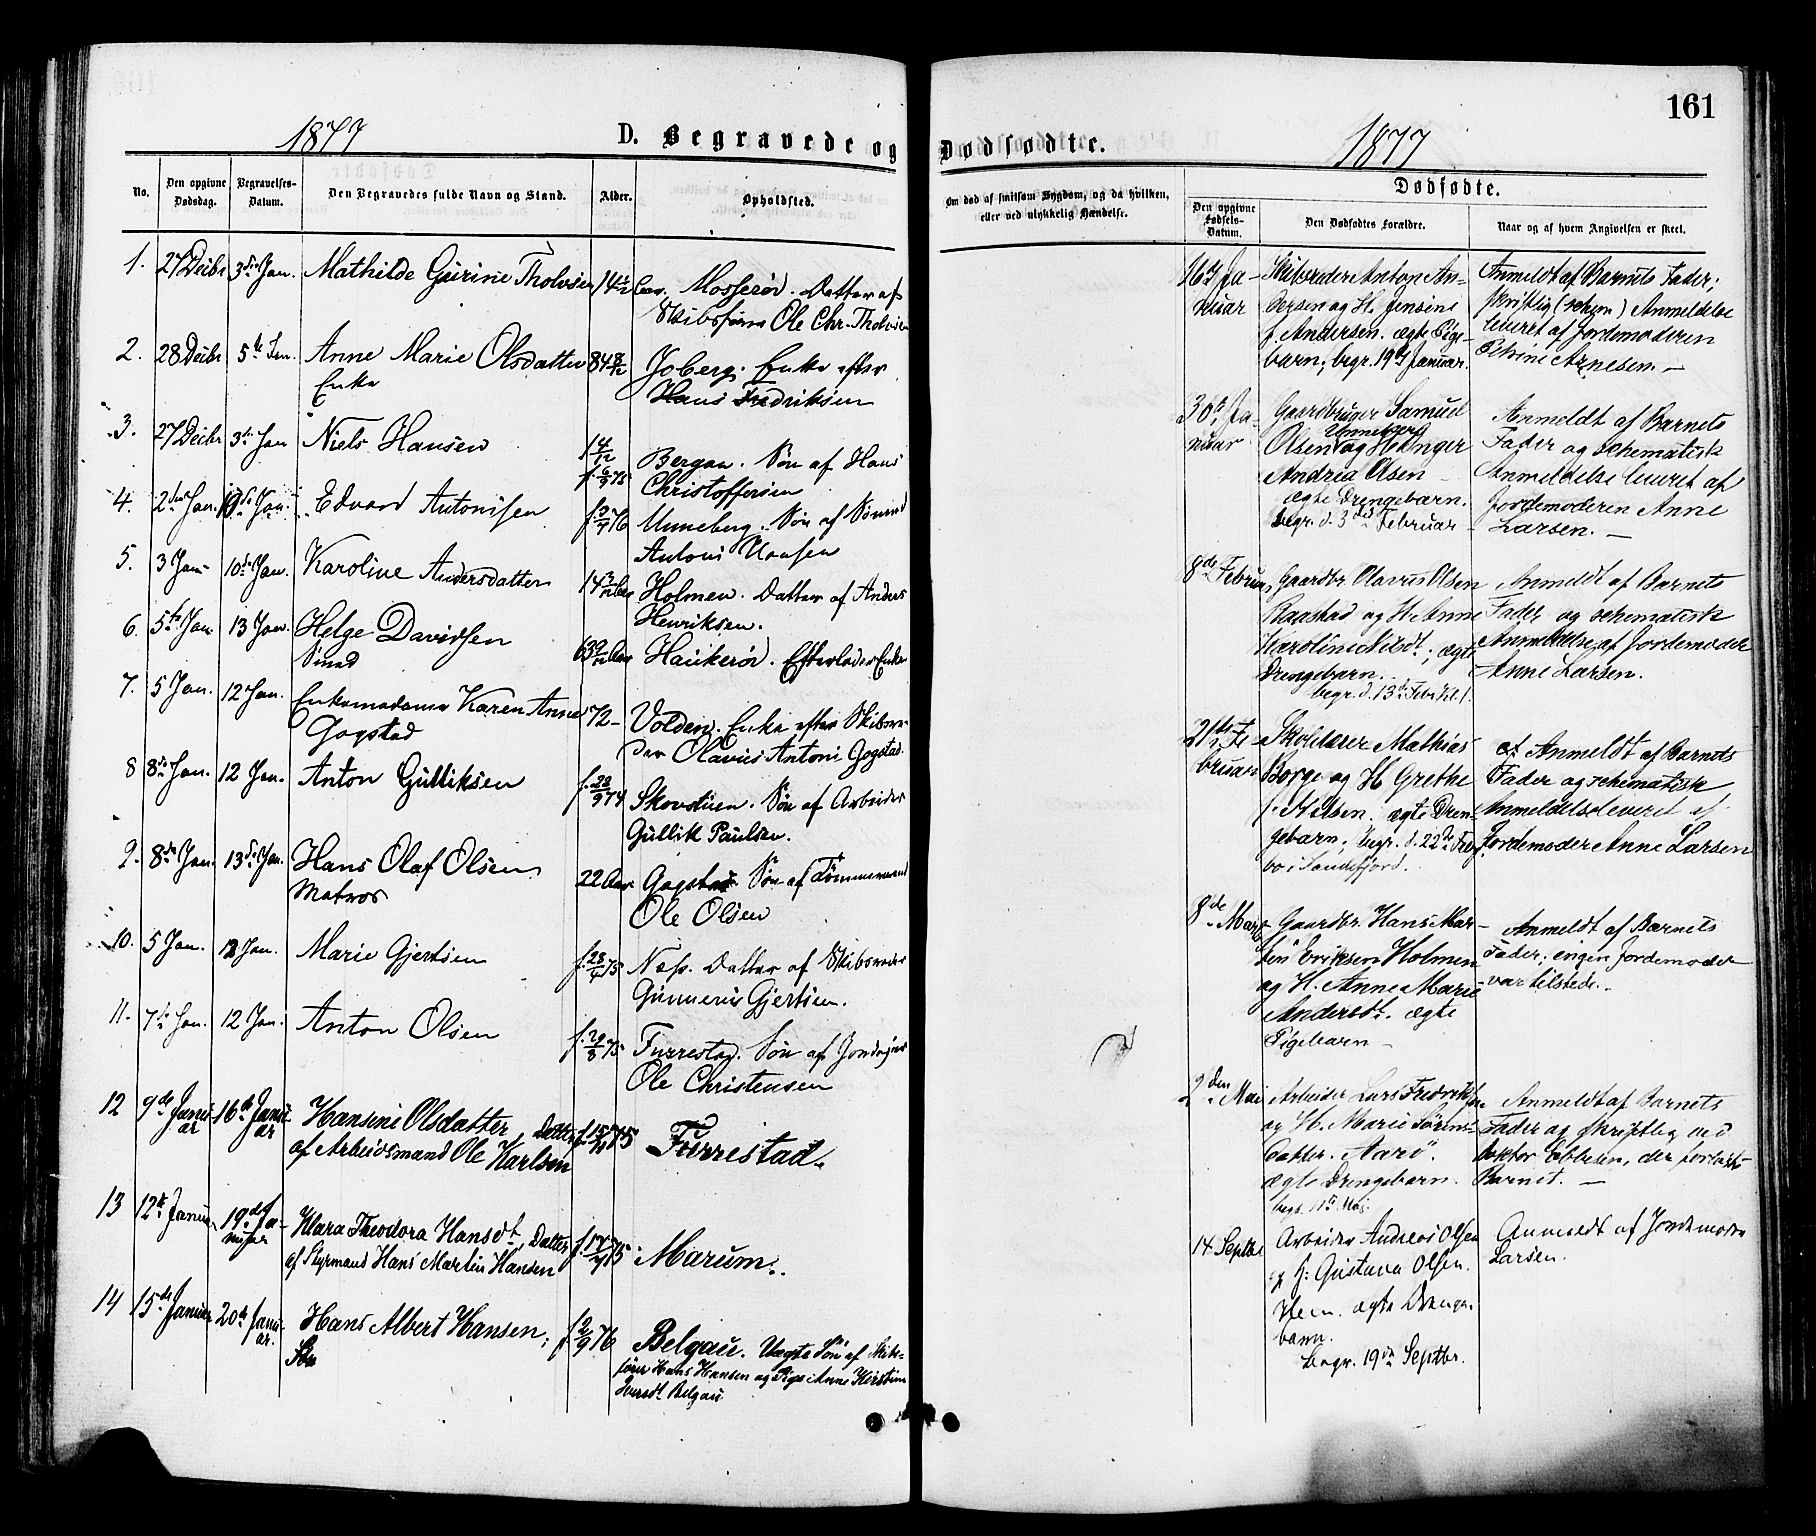 161
1877
D. Begravede og Dødfødte.
1877
No.
Den opgivne Dødsdag.
Begravelses-Datum.
Den Begravedes fulde Navn og Stand.
Alder.
Opholdsted.
Om død af smitsom Sygdom, og da hvilken, eller ved ulykkelig Hændelse.
Dødfødte.
Den opgivne Fødsels-Datum.
Den Dødfødtes Forældre.
Naar og af hvem Angivelsen er skeet.
1. 27 Decbr 3die Jan. Mathilde Gurine Tholvsen 14 Mosserød. Datter af
Skibsfører Ole Chr. Tholvsen
2. 28 Decbr 5te Jan. Anne Marie Olsdatter 84 8/12 Joberg. Enke efter
Enke Hans Fredriksen
3. 27 Decbr 3die Jan Niels Hansen 1 4/12 Bergan. Søn af Hans
Christoffersen
4. 2den Jan. Jan. Edvard Antonisen Unneberg. Søn af Sømand
Antoni Hansen
5. 3 Jan 10de Jan. Karoline Andersdatter Holmen. Datter af Anders
Henriksen.
6. 5te Jan. 13 Jan. Helge Davidsen 63 Haukerød. Efterlader Enke
7. 5 Jan. 12 Jan. Enkemadame Karen Anne 72 - Volden. Enke efter Skibsre-
Gogstad der Olavus Antoni Gogstad.
8 8de Jan. 12 Jan. Anton Gulliksen f. 28/9 74 Skovstuen. Søn af Arbeider
Gullik Paulsen.
9. 8de Jan. 13de Jan. Hans Olaf Olsen 22 Aar Gogstad. Søn af Tømmermand
Matros Ole Olsen
10. 5 Jan. 12 Jan. Marie Gjertsen Næs. Datter af Skibsreder
Gunnerius Gjertsen.
11. 7de Jan. 12 Jan. Anton Olsen f. 29/8 75 Furrestad. Søn af Jordejer
Ole Christensen
12 9de Januar 16de Januar Hansine Olsdatter, Datter Furrestad.
af Arbeidsmand Ole Karlsen
13 12te Januar 19de Januar Klara Theodora Hansdt, Datter Marum.
af Styrmand Hans Martin Hansen
14 15de Januar 20de Januar. Hans Albert Hansen; f. 2/9 76 Belgau. Uægte Søn af Skibs-
Søn fører Hans Hansen og Pige Anne Kirstine
Iversdt Belgau
16de Ja- Skibsreder Anton An- Anmeldt af Barnets Fader;
nuar dersen og H. Jensine skriftlig (schem) Anmeldelse
f. Andersen. ægte Pige- leveret af Jordemoderen
barn; begr. 19de Januar. Petrine Arnesen. —
30te Ja- Gaardbruger Samuel Anmeldt af Barnets
nuar Olsen Unneberg og H. Inger Fader og schematisk
Andrea Olsen Anmeldelse leveret af
ægte Drengebarn. Jordemoderen Anne
begr. d. 3die Februar Larsen. —
8de Februar Gaardbr. Olavus Olsen Anmeldt af Barnets
Raastad og H. Anne Fader og schematisk
Karoline Nilsdt., ægte Anmeldelse af Jordemoder
Drengebarn. Anne Larsen.
begr. d. 13de Febr
21de Fe- Skolelærer Mathias Anmeldt af Barnets
bruar Borge og H. Grethe Fader og schematisk
f. Nilsen. ægte Dren- Anmeldelse leveret af
gebarn, begr. d. 22de Febr. Jordemoder Anne Larsen
bor i Sandefjord.
8de Marts Gaardbr. Hans Mar- Anmeldt af Barnets
tin Eriksen Holmen Fader; ingen Jordemoder
og H. Anne Marie var tilstede.
Andersdt. ægte
Pigebarn
2den Mai Arbeider Lars Fredriksen Anmeldt af Barnets
og H. Marie Sørens- Fader og skriftlig ved
datter. Aarø. Doktor Ebbesen, der forløste
ægte Drengebarn. Barnet. —
begr. 11te Maj.
14 Septbr Arbeider Andreas Olsen Anmeldt af Jordemoder
og H. Gustava Olsen. Larsen.
Hem. ægte Drenge-
barn.
Begr. 19de Septbr.